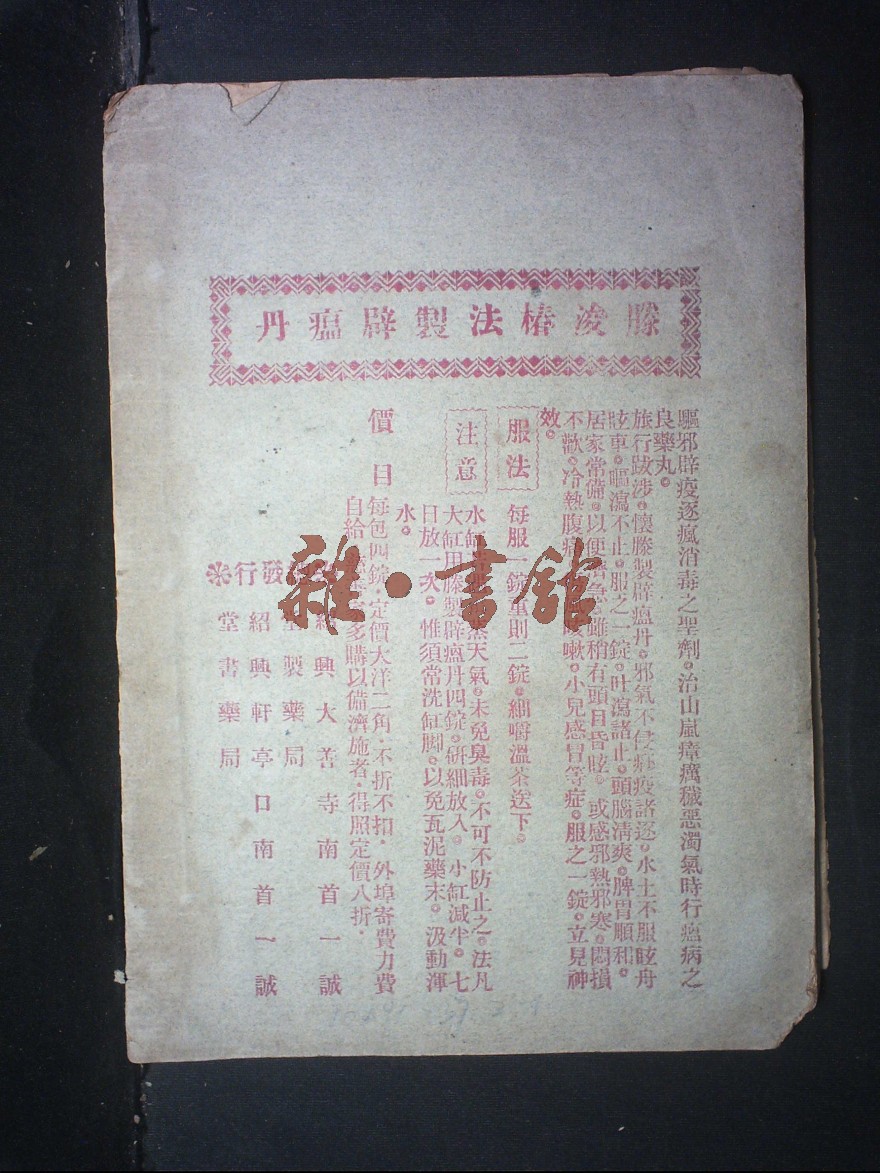 滕淩椿法製辟瘟丹
驅邪辟疫逐瘋消毒之聖劑。治山嵐瘴癘穢惡濁氣時行瘟病之
良藥丸。
旅行跋涉。懷滕製辟瘟丹。邪氣不侵。疫諸逐。水土不服眩舟
眩車。嘔瀉不止。服之一錠。吐瀉諸止。頭腦清爽。脾胃順和。
居家常備。以便濟急。雖稍有頭目昏眩。或感邪熱邪寒。悶損
不歡。冷熱腹痛。咳嗽。小兒感冒等症。服之一錠。立見神
效。
服法
每服一錠重則二錠。細嚼溫茶送下。
注意
水缸 天氣。未免臭毒。不可不防止之。法凡
大缸用滕製辟瘟丹四錠。研細放入。小缸減半。七
日放一次。惟須常洗缸脚。以免瓦泥藥末。汲動渾
水。
價目
每包四錠。定價大洋二角。不折不扣。外埠寄費力費
自給。多購以備濟施者。得照定價八折。
發行
紹興大善寺南首一誠
製藥局
紹興軒亭口南首一誠
堂書藥局
雜·書館